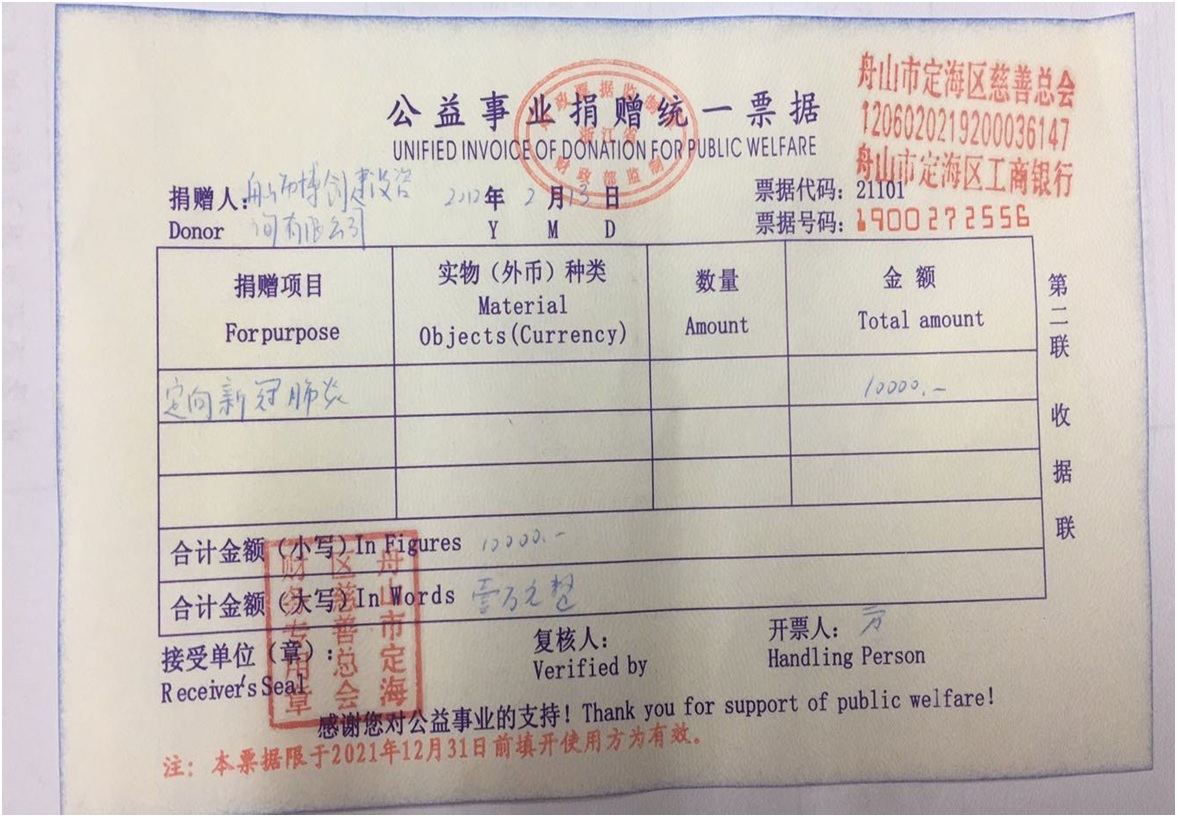 公益事业捐赠统一票据
UNIFIED INVOICE OF DONATION FOR PUBLIC WELFARE
财政票据监制章
浙江省
财政部监制
舟山市定海区慈善总会
1206020219200036147
舟山市定海区工商银行
捐赠人：舟山市博创建设咨
Donor 询有限公司
2020年 2月13日
Y M D
票据代码：21101
票据号码：1900272556
捐赠项目 实物（外币）种类 数量 金额
For purpose Material Objects(Currency) Amount Total amount
定向新冠肺炎 10000.-
合计金额（小写）In Figures 10000.-
合计金额（大写）In Words 壹万元整
接受单位（章）：
Receiver's Seal
复核人：
Verified by
开票人：方
Handling Person
舟山市定海区慈善总会财务专用章
感谢您对公益事业的支持！Thank you for support of public welfare!
注：本票据限于2021年12月31日前填开使用方为有效。
第二联 收据联